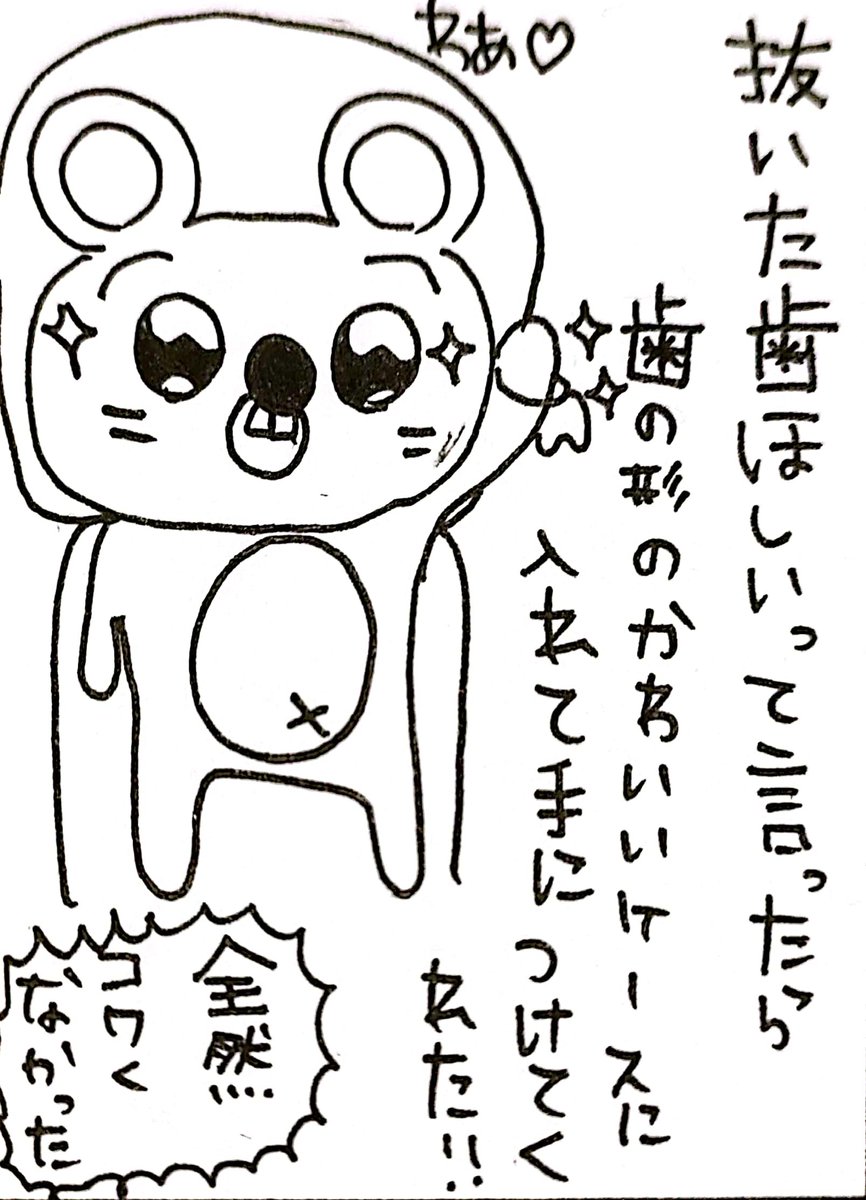 抜いた歯ほしいって言ったら
歯の形のかわいいケースに
入れて手につけてく
れた!!
わあ♡
全然
コワく
なかった